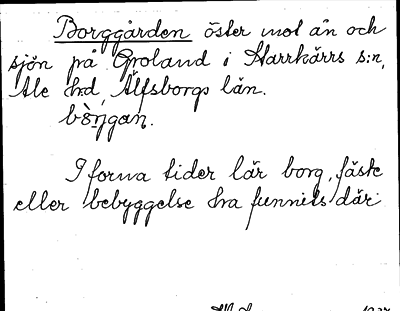 Borggården öster mot ån och
sjön på Groland i Starrkärrs s:n,
Ale hd, Älfsborgs län.
bòrjgan.
I forna tider lär borg, fäste
eller bebyggelse ha funnits där